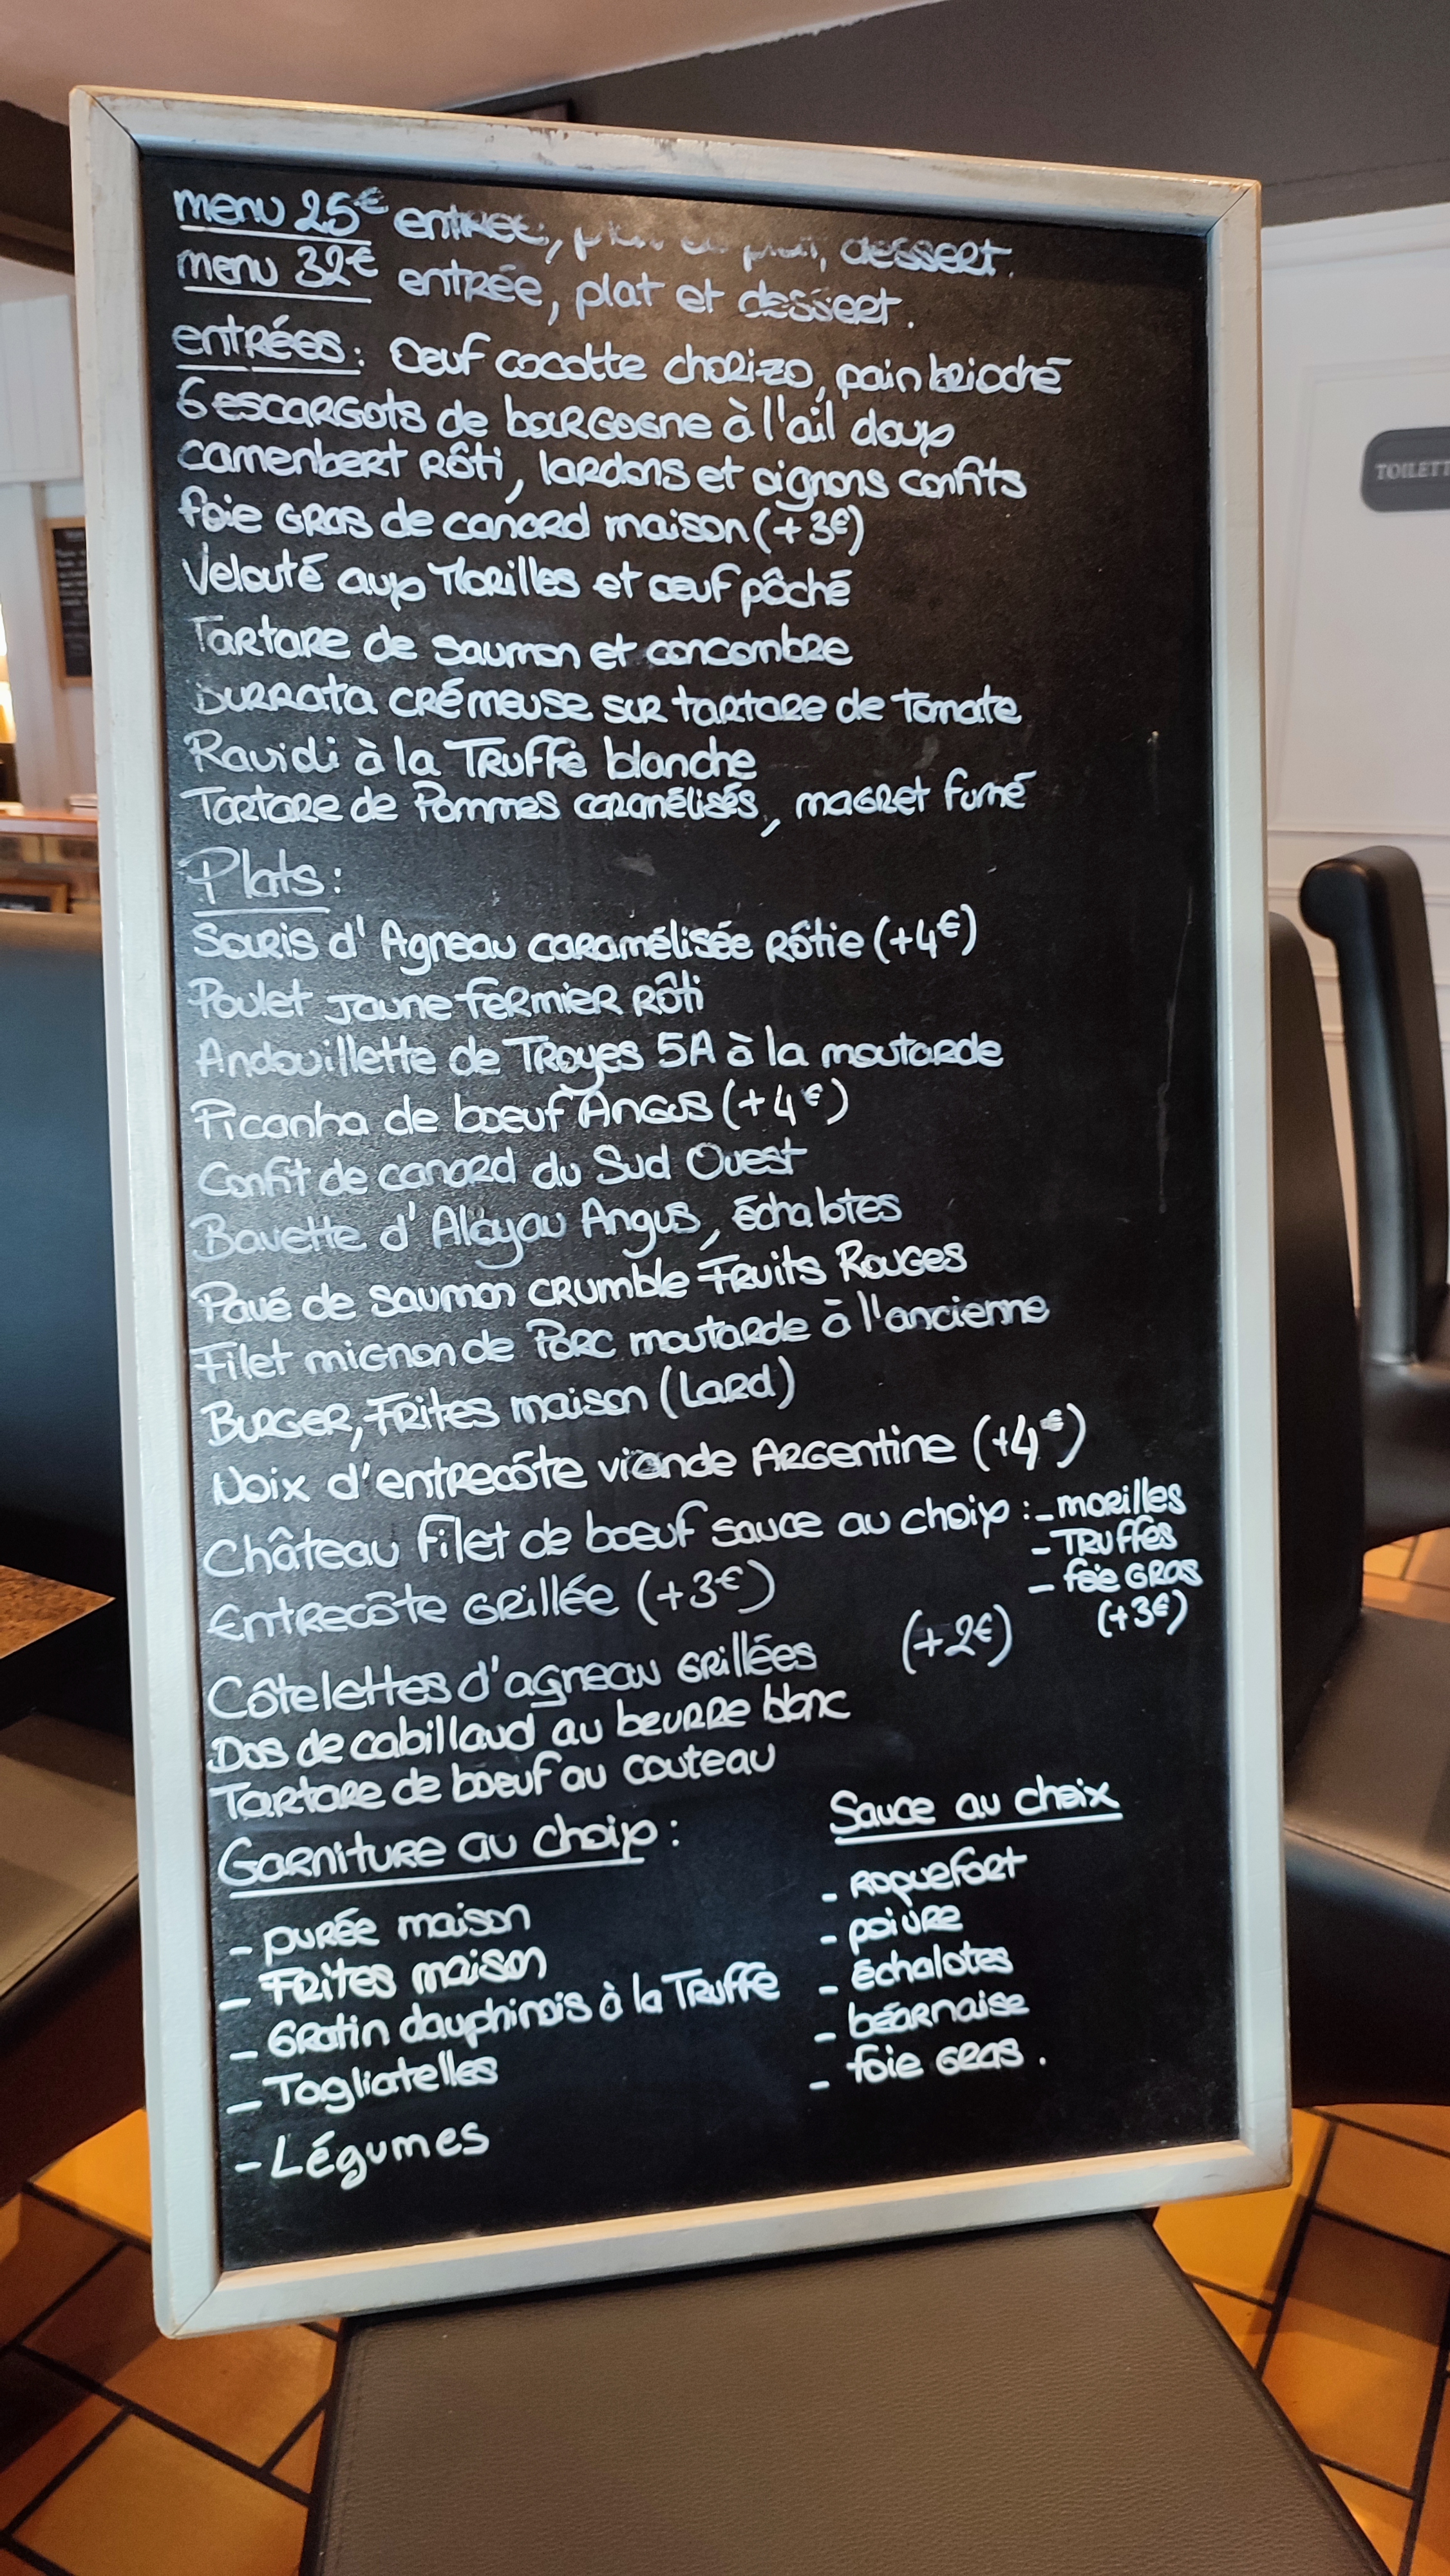 menu 25€ entrée, plat ou plat, dessert.
menu 32€ entrée, plat et dessert.
entrées: Oeuf cocotte chorizo, pain brioché
6 escargots de bourgogne à l'ail doux
camenbert Rôti, lardons et oignons confits
foie GRAS de canard maison (+3€)
Velouté aux Morilles et oeuf pôché
Tartare de saumon et concombre
BURRATA CRÉMEUSE SUR tartare de Tomate
Ravioli à la Truffe blanche
Tartare de Pommes caramélisés, magret fumé
Plats:
Souris d'Agneau caramélisée Rôtie (+4€)
Poulet Jaune fermier Rôti
Andouillette de Troyes 5A à la moutarde
Picanha de boeuf Angus (+4€)
Confit de canard du Sud Ouest
Bavette d'Aloyau Angus, échalotes
Pavé de saumon crumble Fruits Rouges
Filet mignon de Porc moutarde à l'ancienne
Burger, Frites maison (Lard)
Noix d'entrecôte viande Argentine (+4€)
Château Filet de boeuf sauce au choix : - morilles
- Truffes
- foie GRAS
(+3€)
Entrecôte Grillée (+3€)
Côtelettes d'agneau Grillées (+2€)
Dos de cabillaud au beurre blanc
Tartare de boeuf au couteau
Garniture au choix :
- purée maison
- Frites maison
- Gratin dauphinois à la Truffe
- Tagliatelles
- Légumes
Sauce au choix
- Roquefort
- poivre
- échalotes
- béarnaise
- foie GRAS.
TOILETT